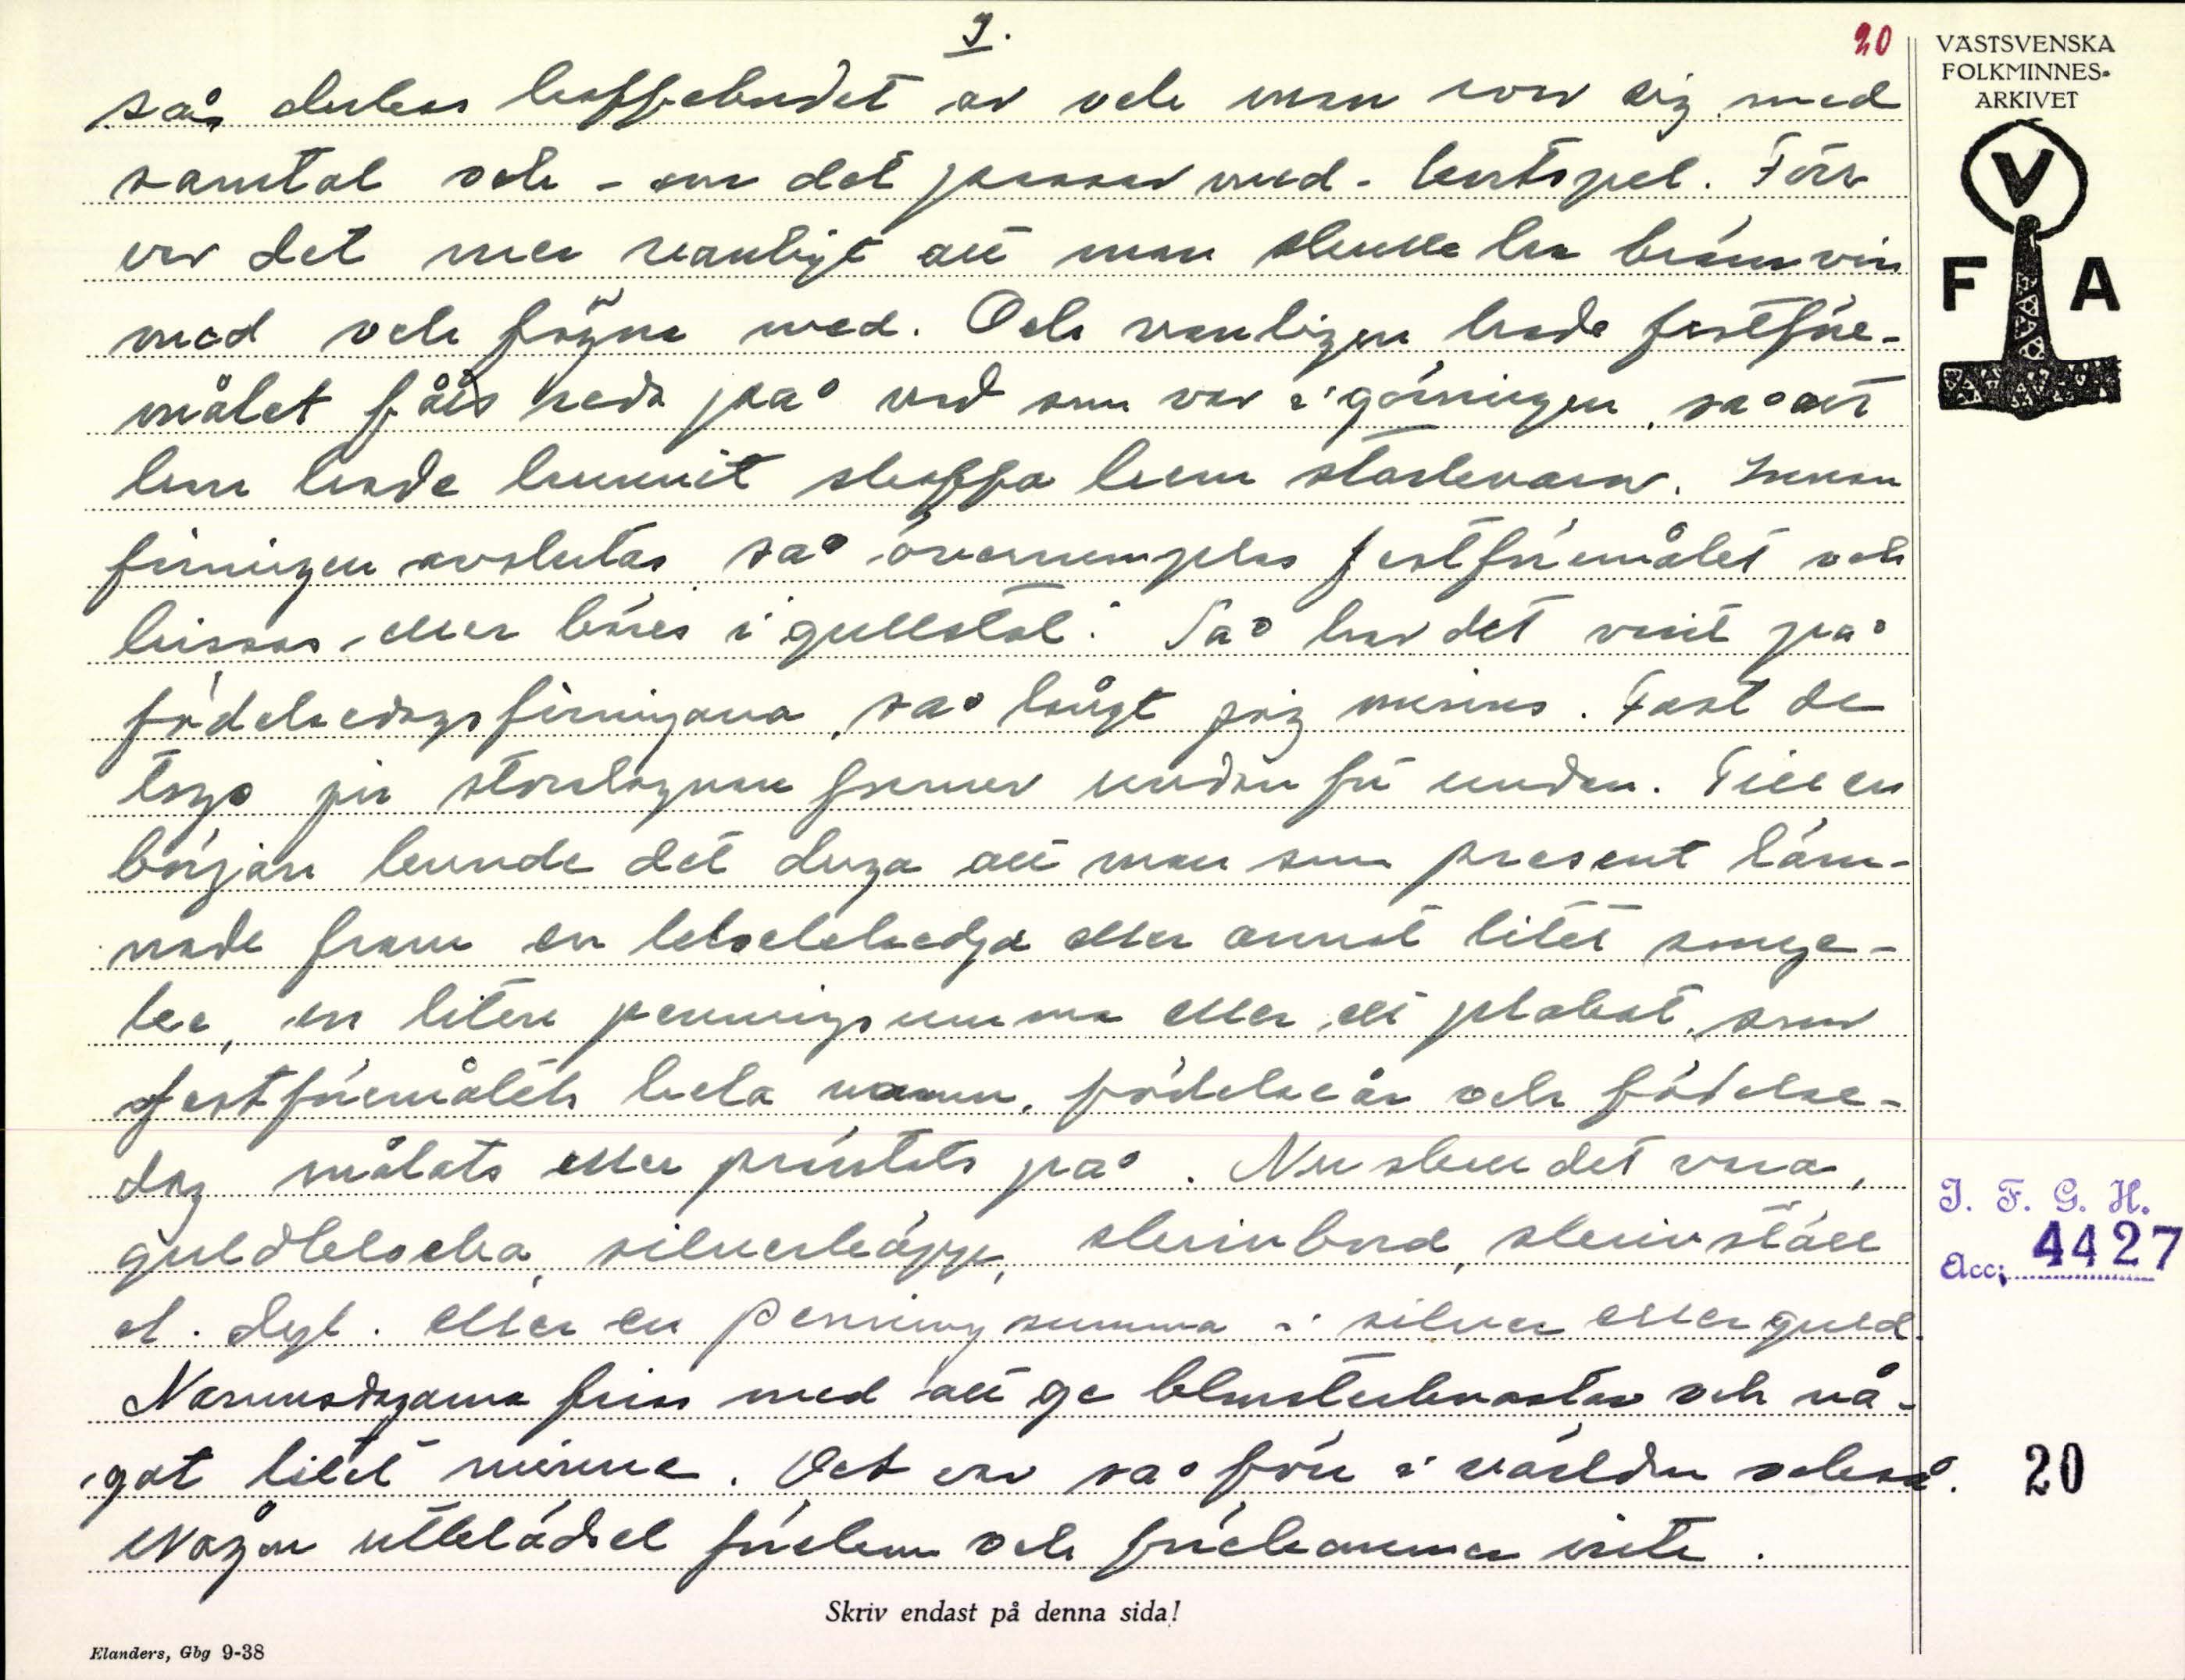 9.
20
så dukas kaffebordet av och man ror sig med
samtal och - om det passar med - kortspel. Förr
var det mer vanligt att man skulle ha brännvin
med och fägna med. Och vanligen hade festföre-
målet fått reda på vad som var i görningen, så att
han hade hunnit skaffa hem starkvaror. Innan
firningen avslutas så överrumplas festföremålet och
hissas, eller bäres i gullstol. Så har det varit på
födelsedagsfirningarna, så långt jag minns. Fast de
togo ju storslagnare former undan för undan. Till en
början kunde det duga att man som present läm-
nade fram en klockkedja eller annat litet smyc-
ke, en liten penningsumma eller ett plakat, som
festföremålets hela namn, födelseår och födelse-
dag målats eller präntats på. Nu skall det vara,
guldklocka, silverkäpp, skrivbord, skrivställ
el. dyl. eller en penningsumma i silver eller guld.
Namnsdagarna firas med att ge blomsterkvastar och nå-
got litet minne. Det var så förr i världen också.
Någon utklädsel förekom och förekommer inte.
VÄSTSVENSKA
FOLKMINNES-
ARKIVET
V
F A
I. F. G. H.
Acc; 4427
20
Skriv endast på denna sida!
Elanders, Gbg 9-38